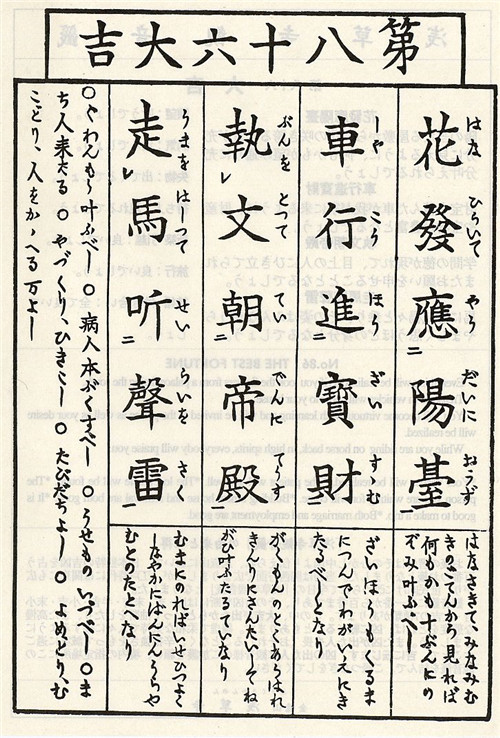 第八十六大吉
花發應二陽臺一
はな ひらいて やう だいに おうず
はなさきてみなみむ
きの
何もかも十ぶんにの
ぞみ叶ふべし
車行進二寶財一
しや こう ほう ざ すゝむ
ざいほうもくるま
につんでわがいえにき
たるべしとなり
執レ文朝二帝殿一
ぶんを とつて てい でんに てうす
がくもんのとくあらはれ
きみにさんだいしてね
がひ叶ふたるていなり
走レ馬听二聲雷一
うまを はしつて せい らいを きく
むまにのればいせひつよく
しなやかにばんにん
むとのたとへなり
○ぐわんもう叶ふべし ○病人本ぶくすべし ○うせものいづべし ○ま
ち人来たる ○やづくり、ひきこし ○たびだちよし ○よめどり、む
こどり、人をかゝへる万よし